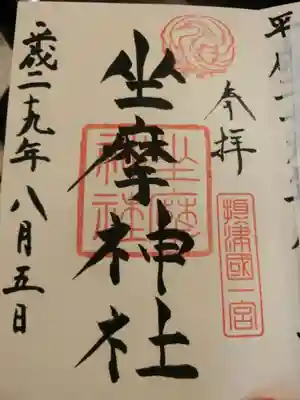 奉拝
摂津國一宮
坐摩神社
坐摩
神社
平成二十九年八月五日